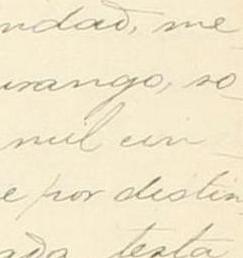 ndad, me
urango, so
mil cin
e por distin
ada testa